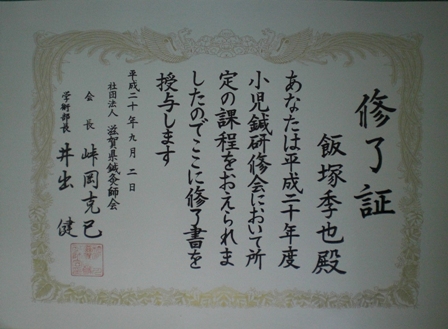 修了証
飯塚季也殿
あなたは平成二十年度
小児鍼研修会において所
定の課程をおえられま
したのでここに修了書を
授与します
平成二十年九月二日
社団法人 滋賀県鍼灸師会
会長 峠岡克巳
学術部長 井出健